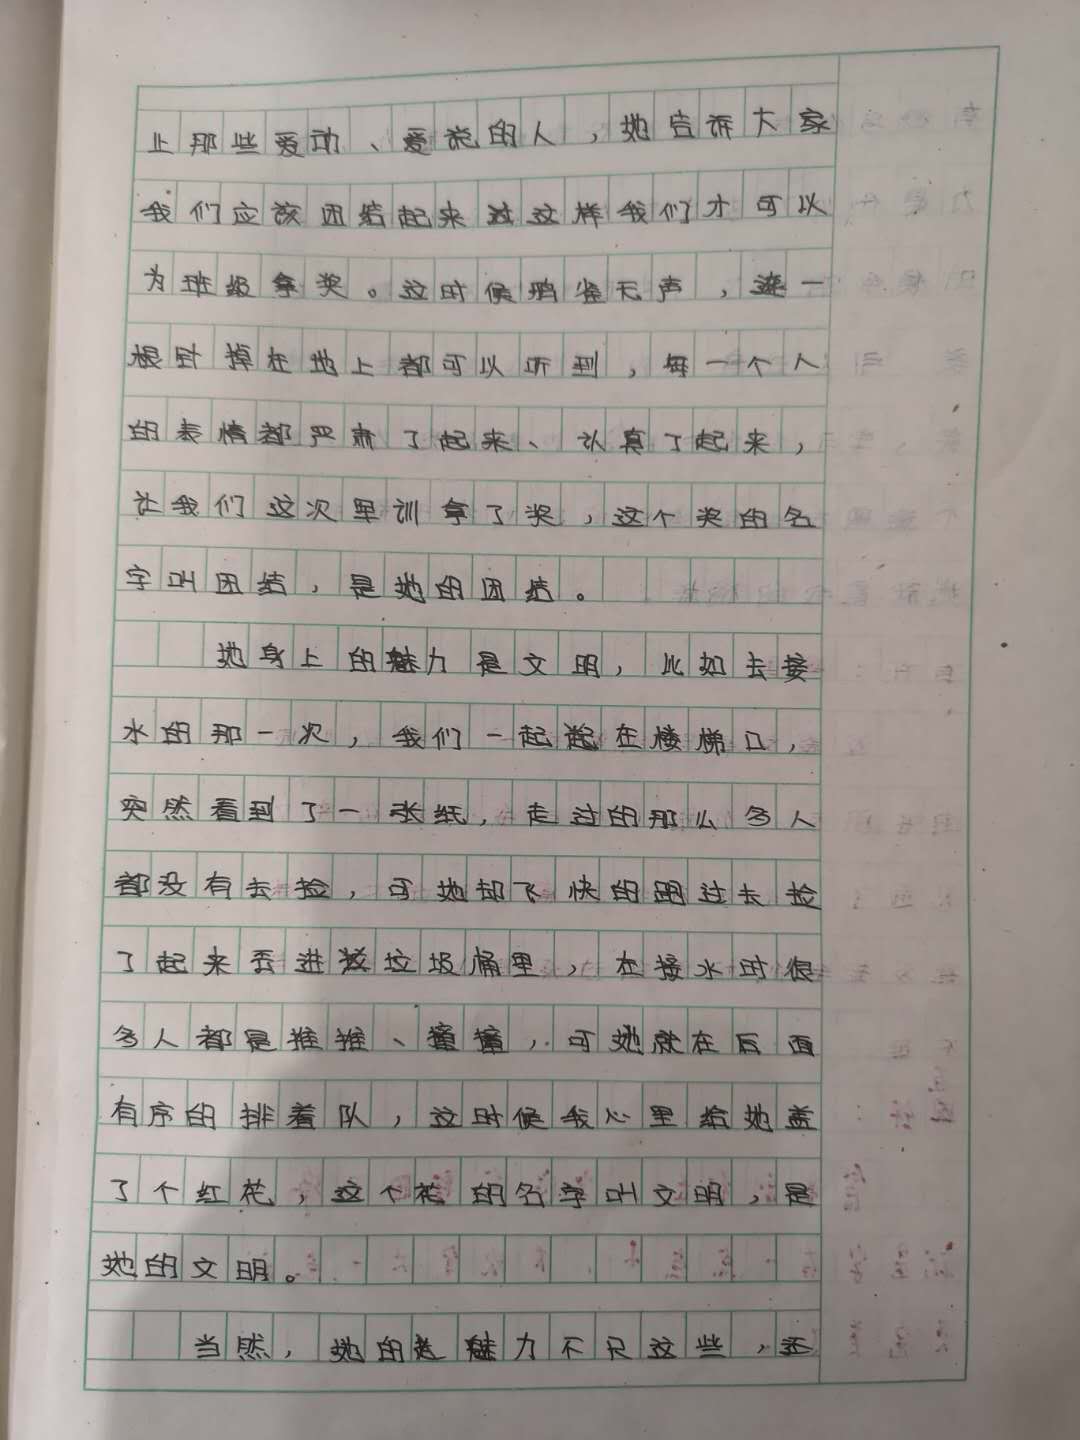 上那些爱动、爱说的人，她告诉大家
我们应该团结起来过这样我们才可以
为班级拿奖。这时候鸦雀无声，连一
根针掉在地上都可以听到，每一个人
的表情都严肃了起来、认真了起来，
让我们这次里训拿了奖，这个奖的名
字叫团结，是她的团结。
她身上的魅力是文明，比如去接
水的那一次，我们一起起在楼梯口，
突然看到了一张纸，走过的那么多人
都没有去捡，可她却飞快的跑过去捡
了起来丢进垃圾桶里，在接水时很
多人都是推推、撞撞，可她就在后面
有序的排着队，这时候我心里给她盖
了个红花，这个花的名字叫文明，是
她的文明。
当然，她的魅力不只这些，还